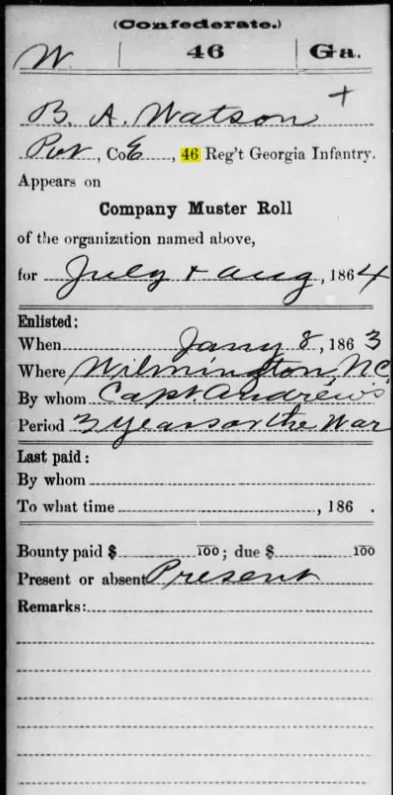 (Confederate.)
W. | 46 | Ga.
B. A. Watson +
Pvt, Co. E, 46 Reg't Georgia Infantry.
Appears on
Company Muster Roll
of the organization named above,
for July & Aug, 1864
Enlisted:
When Jany 8, 1863
Where Wilmington, NC
By whom Capt. Andrews
Period 3 years or the War
Last paid:
By whom
To what time , 186 .
Bounty paid $ 100; due $ 100
Present or absent Present
Remarks: